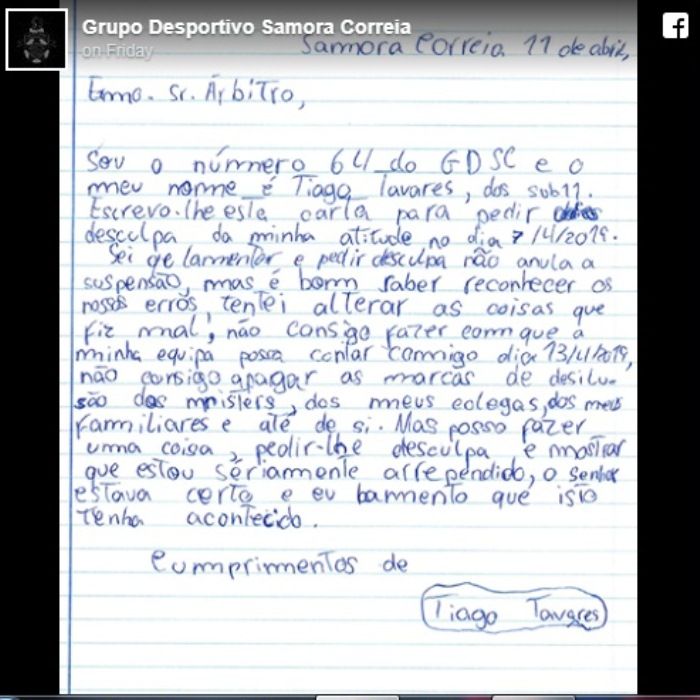 Grupo Desportivo Samora Correia
on Friday
Sammora Correia 11 de abril,
Exmo. Sr. Árbitro,
Sou o número 64 do GDSC e o
meu nome é Tiago Tavares, dos sub11.
Escrevo-lhe esta carta para pedir
desculpa da minha atitude no dia 7/4/2019.
Sei qe lamentar e pedir desculpa não anula a
suspensão, mas é bom saber reconhecer os
nossos erros, tentei alterar as coisas que
fiz mal, não consigo fazer com que a
minha equipa possa contar commigo dia 13/4/2019,
não consigo apagar as marcas de desilu-
são dos misters, dos meus colegas, dos meus
familiares e até de si. Mas posso fazer
uma coisa, pedir-lhe desculpa e mostrar
que estou sériamente arrependido, o senhor
estava certo e eu lamento que isto
tenha acontecido.
Cumprimentos de
Tiago Tavares